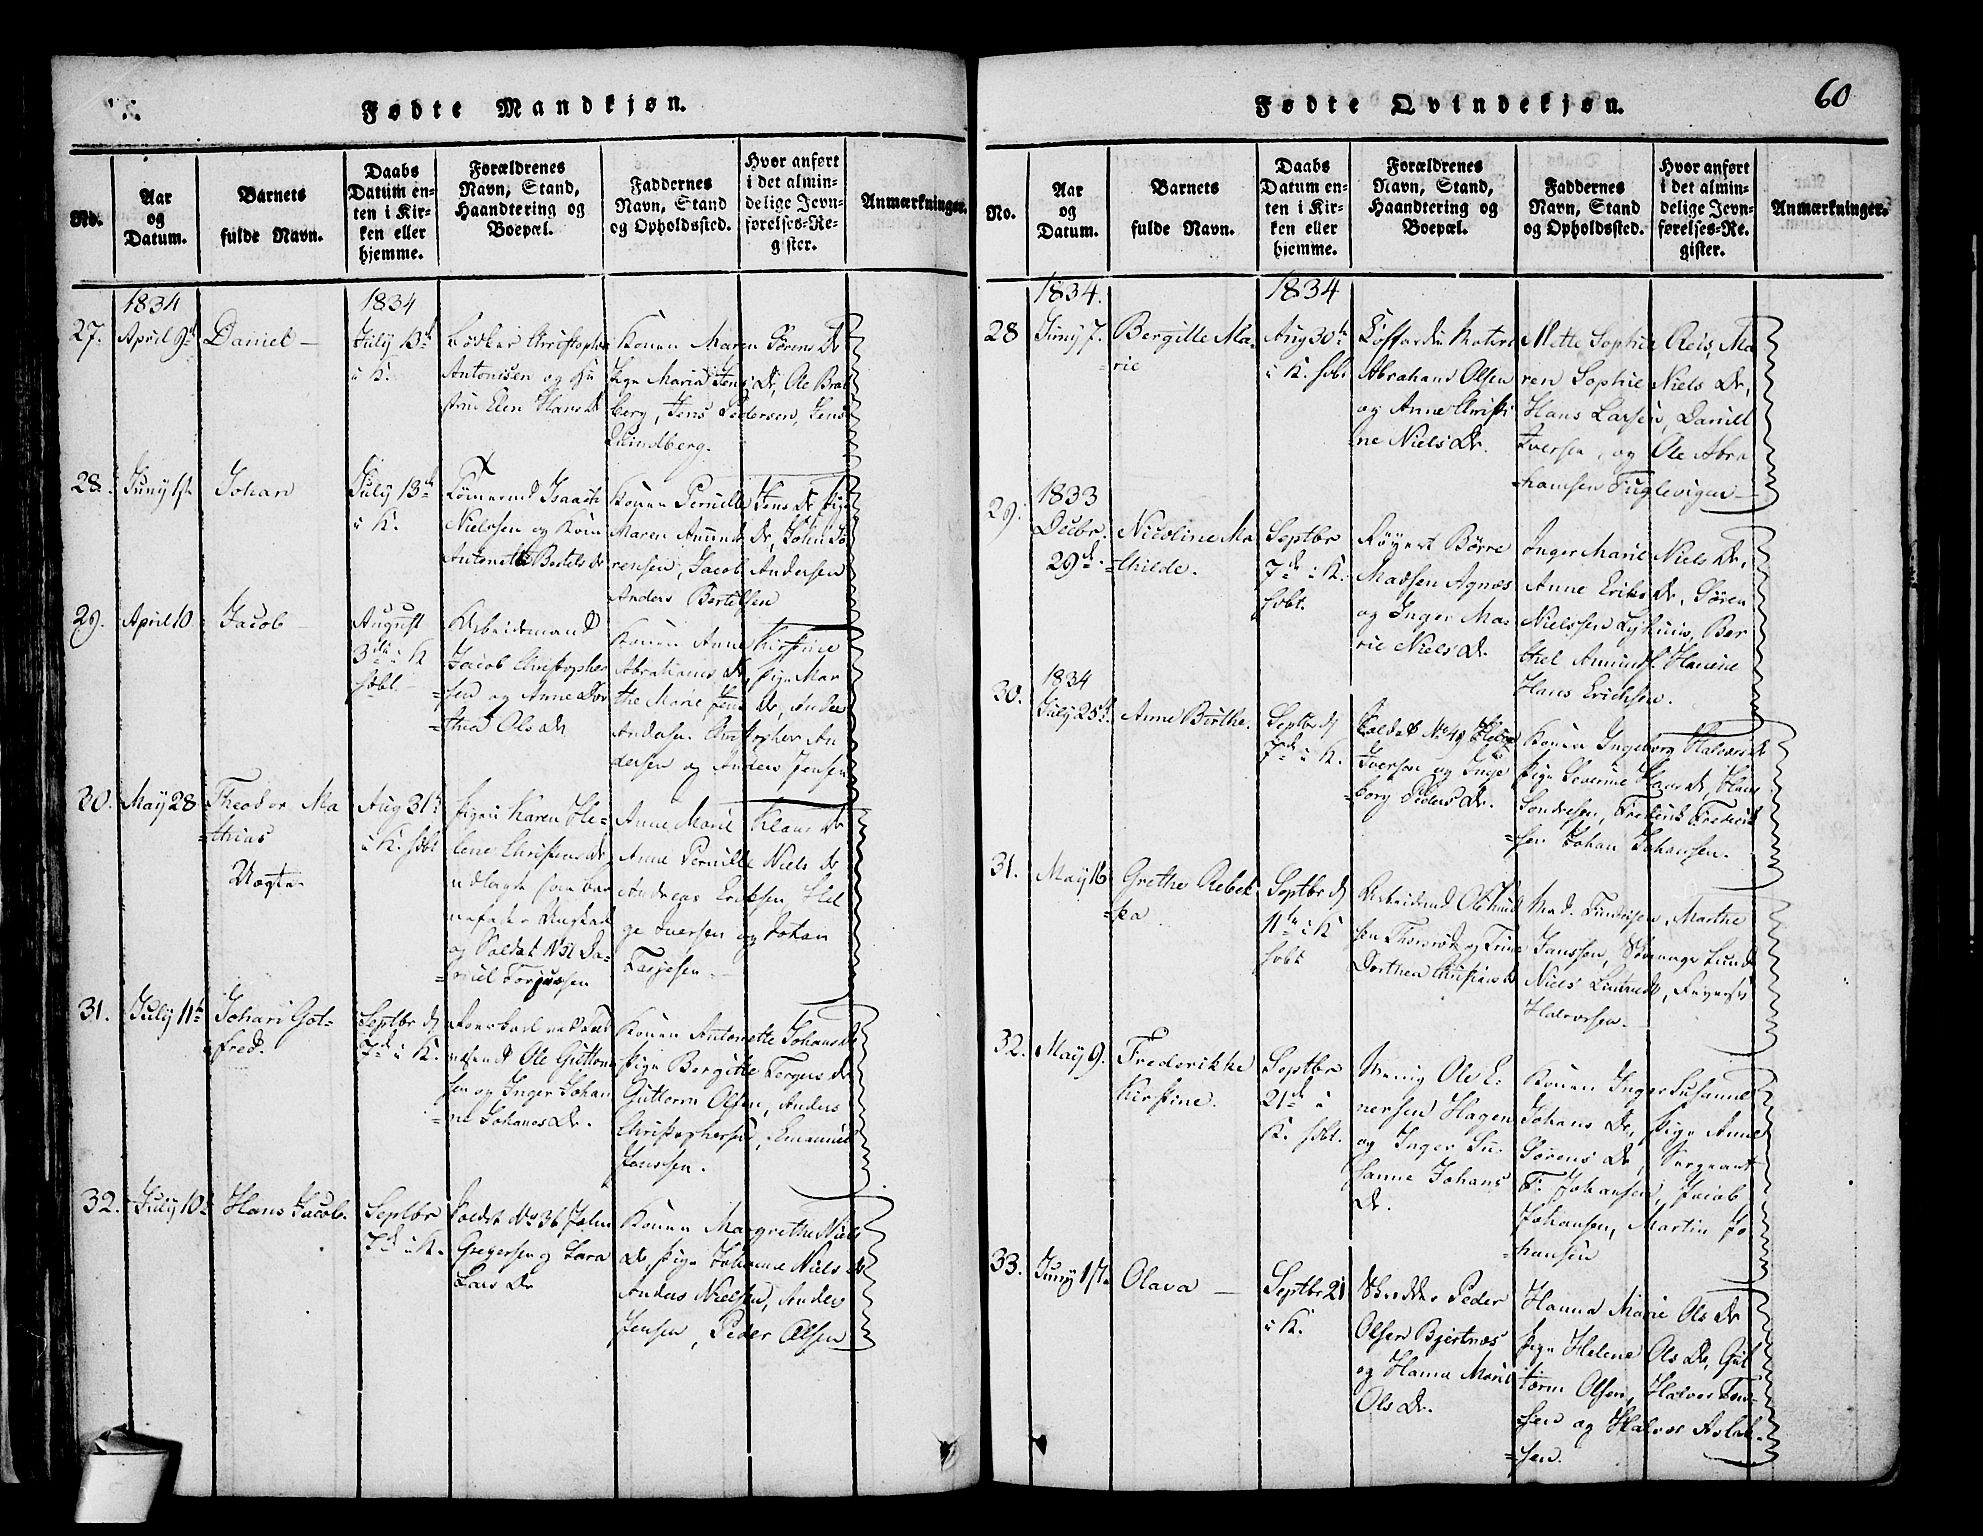 Fødte Mandkjøn.
No.
Aar
og
Datum.
Barnets
fulde Navn.
Daabs
Datum en-
ten i Kir-
ken eller
hjemme.
Forældrenes
Navn, Stand,
Haandtering og
Boepæl.
Faddernes
Navn, Stand
og Opholdssted.
Hvor anført
i det almin-
delige Jevn-
førelses-Re-
gister.
Anmærkninger.
1834
1834
27.
April 9d
Daniel
July 13d
i K.
Christopher
Antonisen og Hu
stru Elen Hans Dr
Konen Maren Sørens Dr
Pige Maria Jens Dr, Ole Brat
berg, Jens Pedersen, Jens
Lundberg.
28.
Juny 1ste
Johan
July 13de
i K.
Tømermd Isaach
Nielssen og Kone
Antonette Bertels Dr
Konen Pernille Jens Dr Pige
Maren Amund Dr, John Sø
rensen, Jacob Andersen
Anders Bertelsen
29.
April 10
Jacob
August
3die i K
hbt
Arbeidsmand
Jacob Christopher
sen og Anne Dor
thea Ols Dr
Konen Anne Kirstine
Abrahams Dr, Pige Mar
the Marie Jens Dr, Anders
Andersen Christopher An
dersen og Anders Jensen
30.
May 28
Theodor Ma
thias
Uægte
Aug 31te
i K. hbt
Pigen Karen He-
lene Christens Dr
udlagte som bar
nefader Ungkar
og Soldat No 51 Da-
niel Torjussen
Anne Marie Klaus Dr
Anne Pernille Niels Dr
Andreas Eriksen, Hel
ge Iversen og Johan
Tarjesen
31.
July 11te
Johan Got-
fred.
Septbr d
7de i K.
Ole Guttorm
sen og Inger Johan
ne Johanes Dr.
Konen Antonette Johans Dr
Pige Bergitte Torgus Dr
Guttorm Olsen, Anders
Christophersen, Emanuel
Jonssen.
32.
July 10de
Hans Jacob.
Septbr
7de i K.
Soldat No 36 John
Gregersen og Sara
Lars Dr
Konen Margrethe Niels
Dr, Pige Johanne Niels Dr
Anders Nielsen, Anders
Jensen, Peder Olsen
Fødte Qvindekjøn.
60
No.
Aar
og
Datum.
Barnets
fulde Navn.
Daabs
Datum en-
ten i Kir-
ken eller
hjemme.
Forældrenes
Navn, Stand,
Haandtering og
Boepæl.
Faddernes
Navn, Stand
og Opholdssted.
Hvor anført
i det almin-
delige Jevn-
førelses-Re-
gister.
Anmærkninger.
1834.
1834
28
Juny 7.
Bergitte Ma-
rie
Aug 30te
i K. hbt
Abraham Olsen
og Anne Christi
ne Niels Dr.
Mette Sophie Reis, Ma
ren Sophie Niels Dr,
Hans Larsen, Daniel
Iversen, og Ole Abra
hamsen Fuglevigen
29.
1833
Decbr.
29de
Nicoline Ma
thilde.
Septbr
7de i K.
hbt.
Børre
Madsen Agnæs
og Inger Ma-
rie Niels Dr.
Inger Marie Niels Dr,
Anne Eriks Dr, Søren
Nielssen Lyhuus, Ber
thel Amunds. Havene
Hans Erichsen.
30.
1834
July 25d
Anne Birthe.
Septbr d
7de i K.
Soldat No 41 Helge
Iversen og Inge
borg Peders Dr.
Konen Ingeborg Halvors Dr
Pige Severine Hans Dr, Hans
Sondresen, Frederik Frederik
sen Johan Johansen.
31.
May 16
Grethe Rebek
ka.
Septbr d
11te i K
hbt
Arbeidsmd Ole Knud
sen Thorsrød og Trine
Dorthea Christens Dr
Mad. Gundersen, Marthe
Janssen, Lund
Niels
Halvorsen.
32.
May 9.
Frederikke
Kirstine.
Septbr
21de i
K. hbt.
Menig Ole E-
nersen Hagen
og Inger Su-
sanne Johans
Dr.
Konen Inger Susanne
Johans Dr, Pige Anne
Sørens Dr, Sergeant
F. Johansen, Jacob
Johansen, Martin Jo
hansen
33.
Juny 1ste
Olava
Septbr 21
i K.
Skrædder Peder
Olsen Bjertnæs
og Hanna Marie
Ols Dr.
Hanna Marie Ols Dr
Pige Helene Ols Dr, Gut
torm Olsen, Halvor Jen-
sen og Halvor Aslak-
sen.